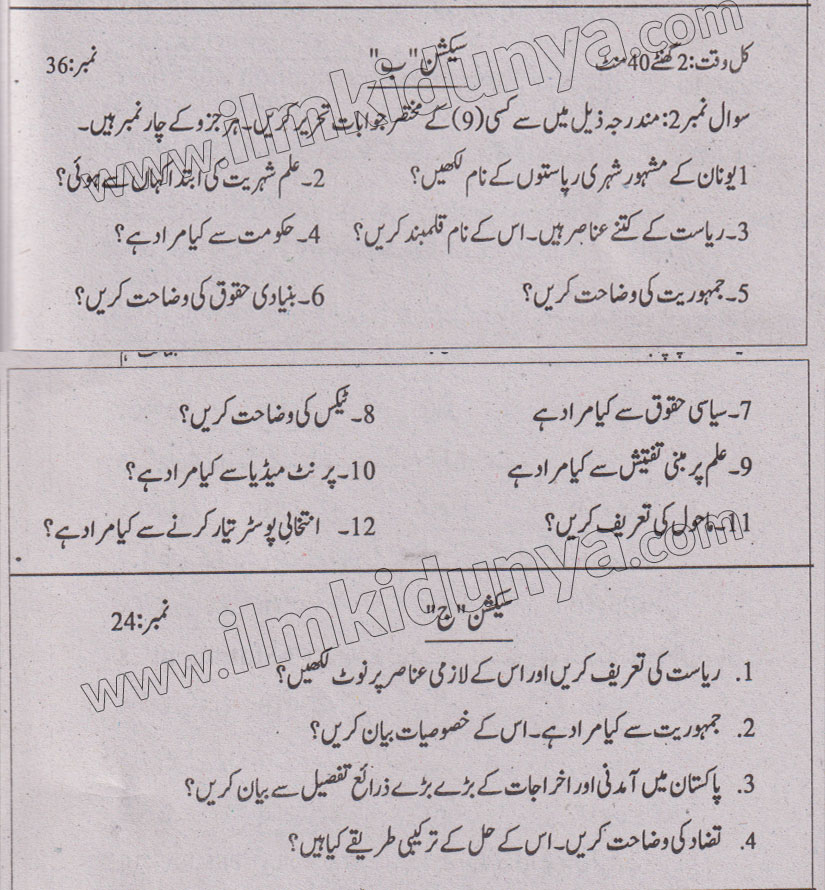 کل وقت: 2 گھنٹے 40 منٹ سیکشن "ب" نمبر: 36
سوال نمبر 2: مندرجہ ذیل میں سے کسی (9) کے مختصر جوابات تحریر کریں۔ ہر جزو کے چار نمبر ہیں۔
1 یونان کے مشہور شہری ریاستوں کے نام لکھیں؟ 2۔ علم شہریت کی ابتدا کہاں سے ہوئی؟
3۔ ریاست کے کتنے عناصر ہیں۔ اس کے نام قلمبند کریں؟ 4۔ حکومت سے کیا مراد ہے؟
5۔ جمہوریت کی وضاحت کریں؟ 6۔ بنیادی حقوق کی وضاحت کریں؟
7۔ سیاسی حقوق سے کیا مراد ہے 8۔ ٹیکس کی وضاحت کریں؟
9۔ علم پر مبنی تفتیش سے کیا مراد ہے 10۔ پرنٹ میڈیا سے کیا مراد ہے؟
11۔ ماحول کی تعریف کریں؟ 12۔ انتخابی پوسٹر تیار کرنے سے کیا مراد ہے؟
سیکشن "ج" نمبر: 24
1. ریاست کی تعریف کریں اور اس کے لازمی عناصر پر نوٹ لکھیں؟
2. جمہوریت سے کیا مراد ہے۔ اس کے خصوصیات بیان کریں؟
3. پاکستان میں آمدنی اور اخراجات کے بڑے بڑے ذرائع تفصیل سے بیان کریں؟
4. تضاد کی وضاحت کریں۔ اس کے حل کے ترکیبی طریقے کیا ہیں؟
www.ilmkidunya.com
www.ilmkidunya.com